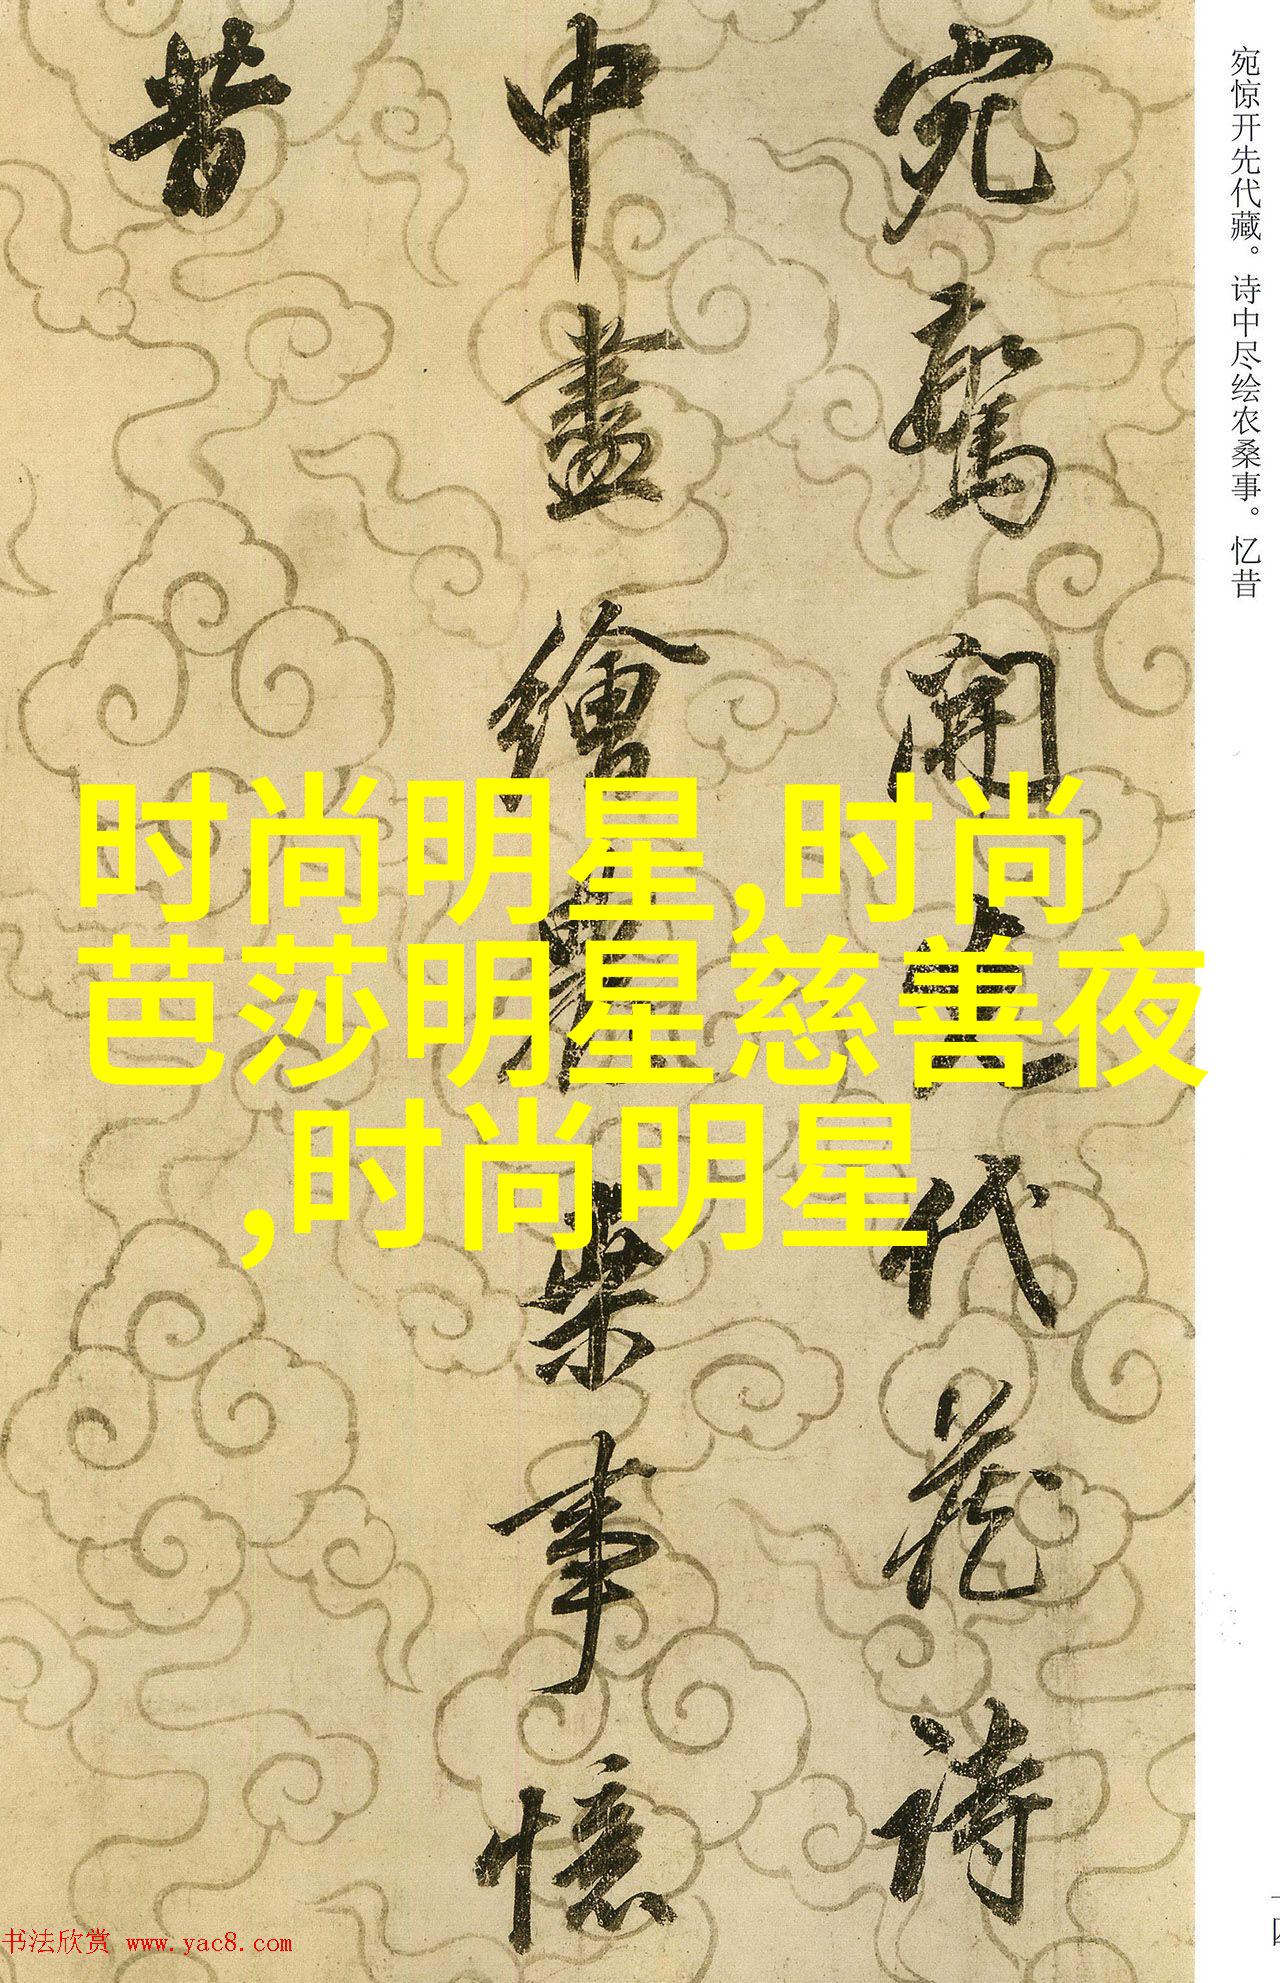 宛驚開先代藏詩
中盡繪農桒事憶
昔
宛惊开先代藏。诗中尽绘农桑事。忆昔
时尚明星,时尚
芭莎明星慈善夜
,时尚明星
书法欣赏 www.yac8.com